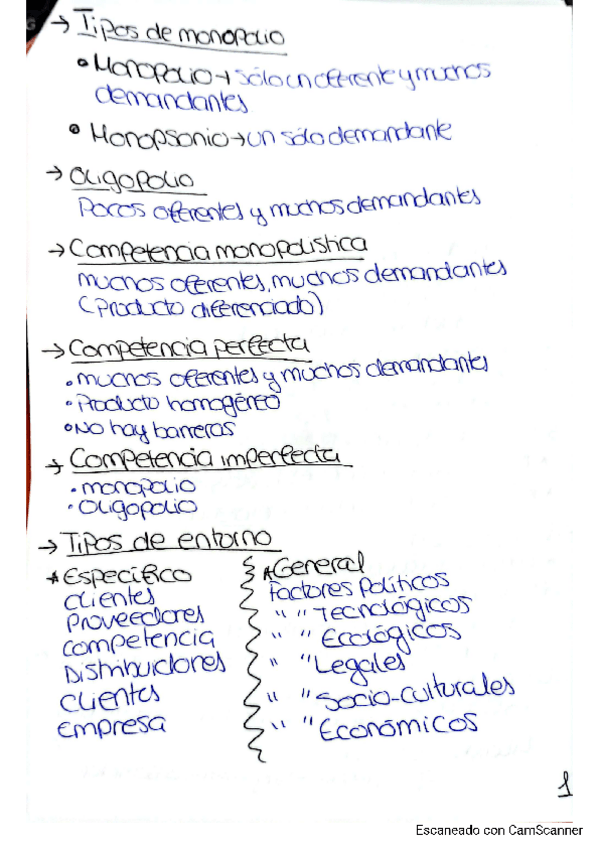 → Tipos de monopolio
• Monopolio → sólo un oferente y muchos
demandantes
• Monopsonio → un sólo demandante
→ Oligopolio
Pocos oferentes y muchos demandantes
→ Competencia monopolística
muchos oferentes, muchos demandantes
(Producto diferenciado)
→ Competencia perfecta
• muchos oferentes y muchos demandantes
• Producto homogéneo
• No hay barreras
→ Competencia imperfecta
• monopolio
• Oligopolio
→ Tipos de entorno
* Específico
Clientes
Proveedores
Competencia
Distribuidores
Clientes
Empresa
* General
Factores Políticos
" " Tecnológicos
" " Ecológicos
" " Legales
" " Socio-culturales
" " Económicos
1
Escaneado con CamScanner